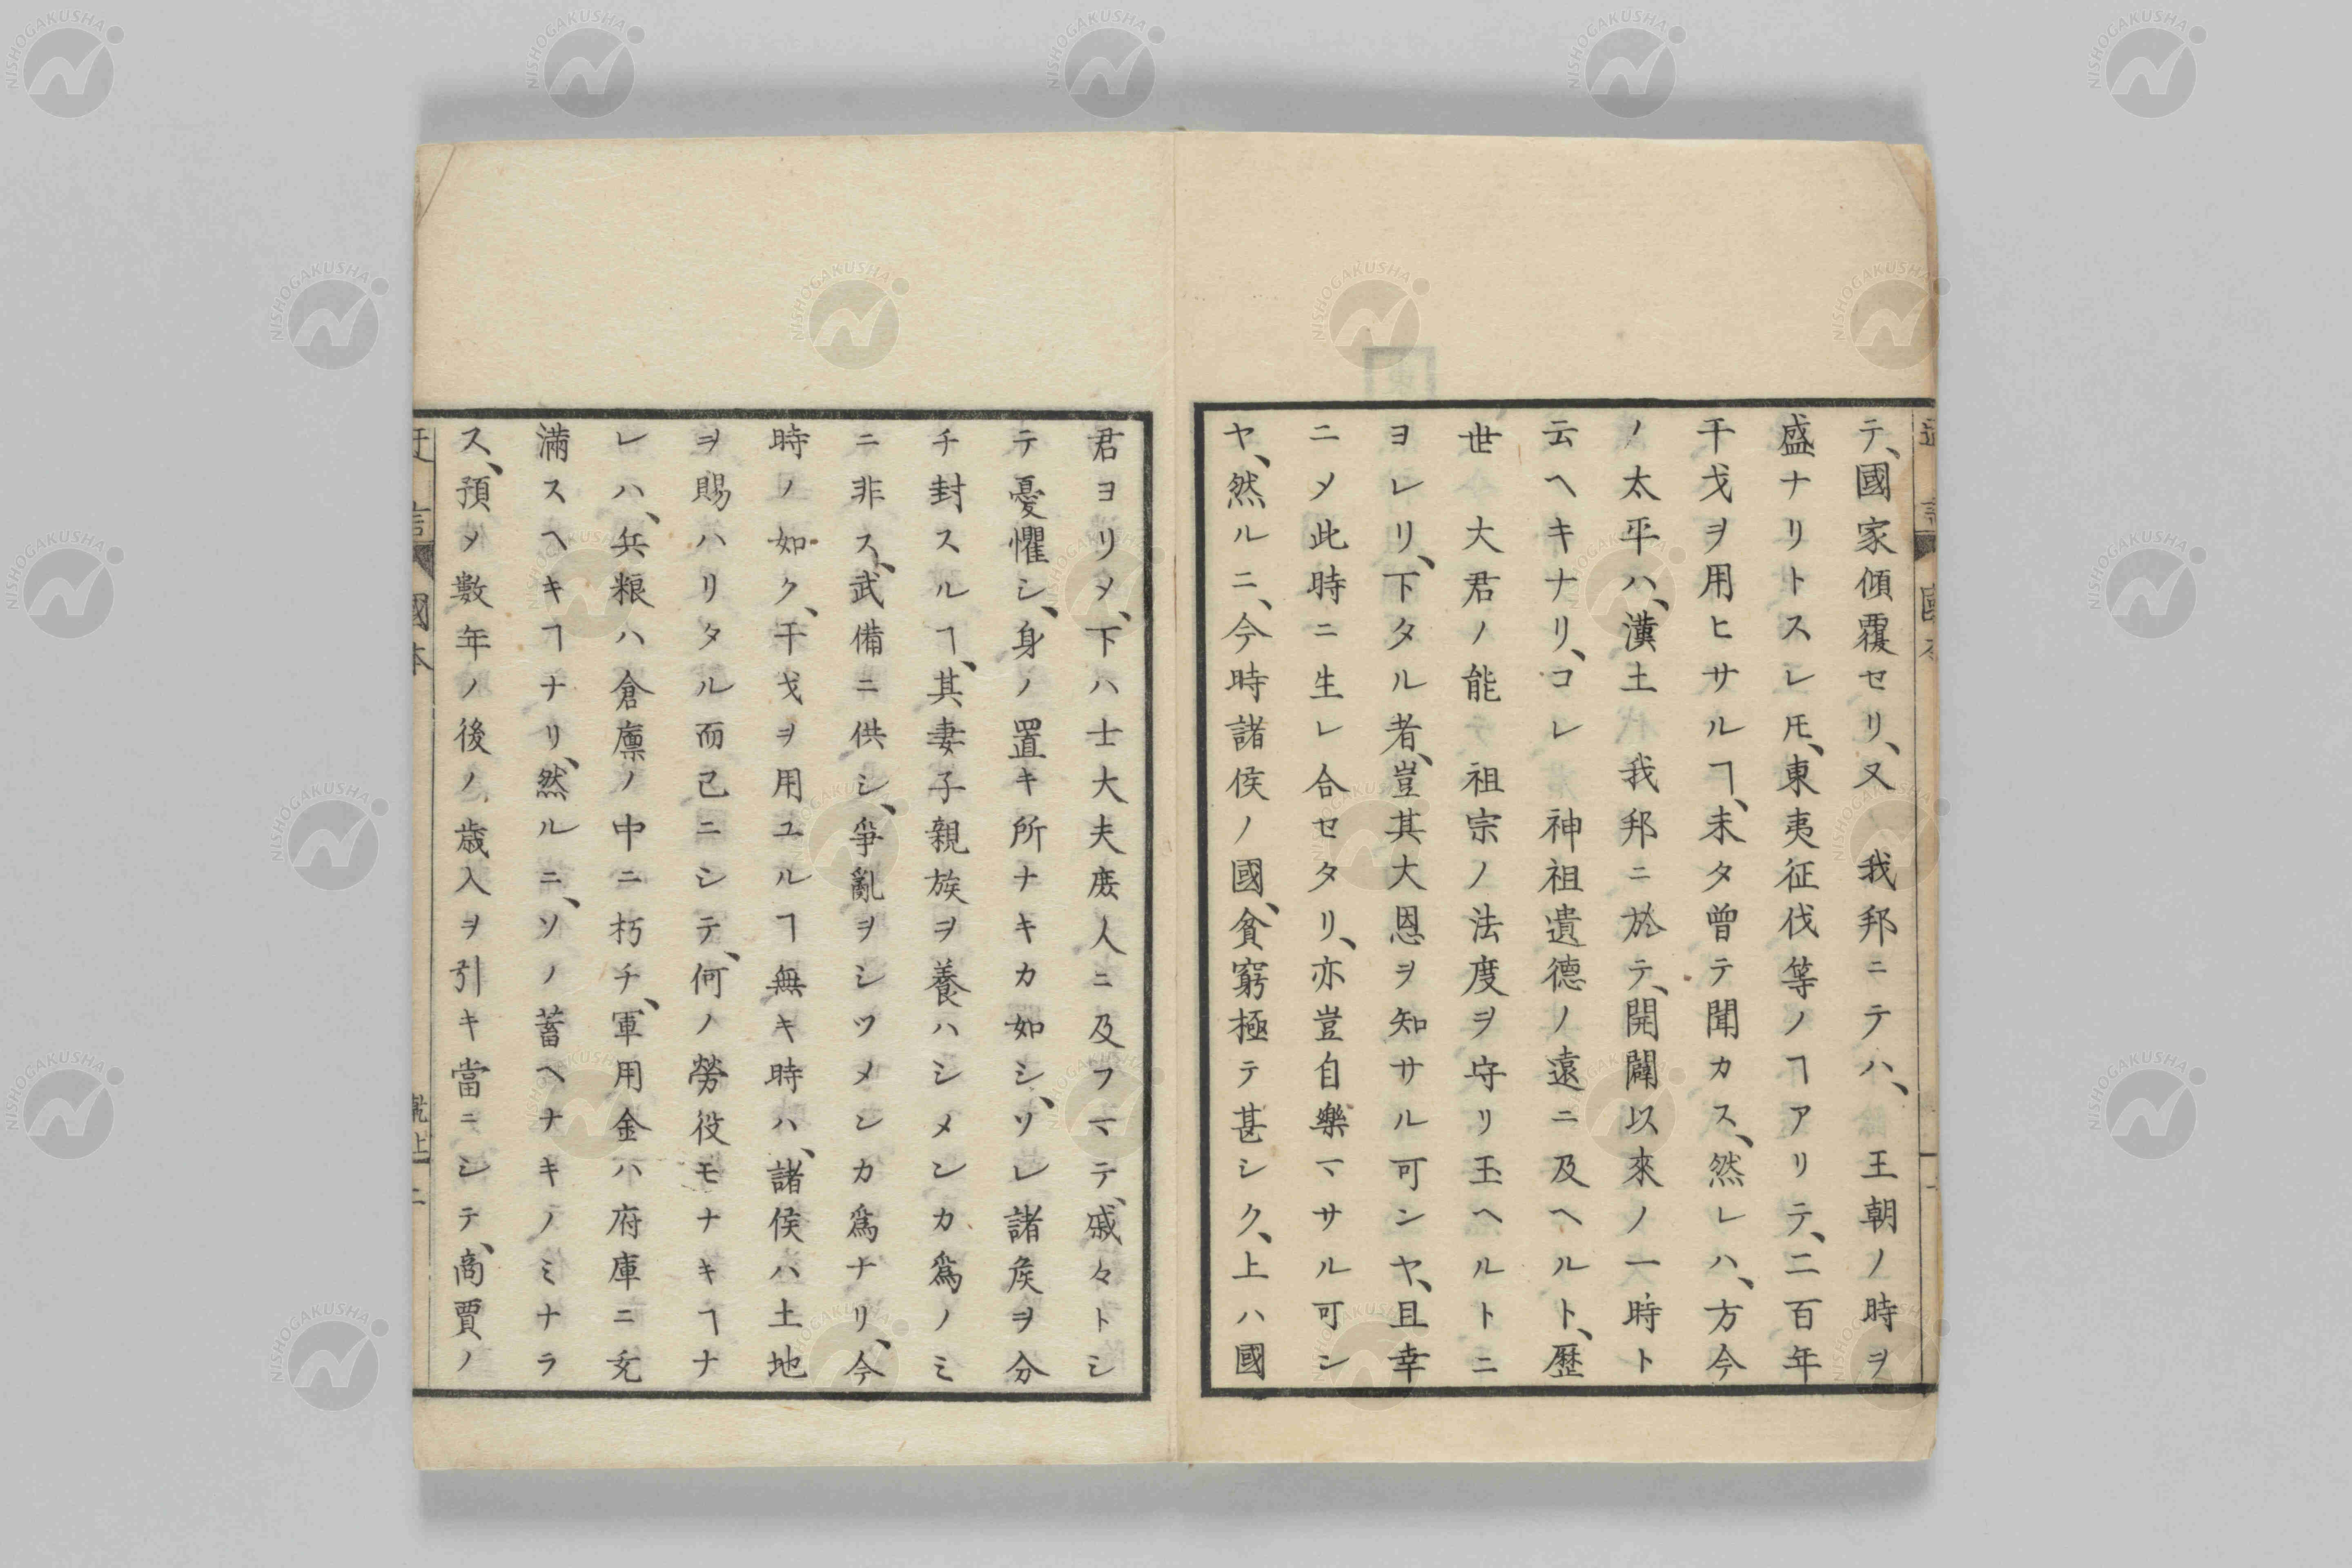 テ、國家傾覆セリ、又 我邦ニテハ、 王朝ノ時ヲ
盛ナリトスレ𪜈、東夷征伐等ノヿアリテ、二百年
干戈ヲ用ヒサルヿ、未タ曾テ聞カス、然レハ、方今
ノ太平ハ、漢土 我邦ニ於テ、開闢以來ノ一時ト
云ヘキナリ、コレ 神祖遺德ノ遠ニ及ヘルト、歷
世 大君ノ能 祖宗ノ法度ヲ守リ玉ヘルトニ
ヨレリ、下タル者、豈其大恩ヲ知サル可ンヤ、且幸
ニメ此時ニ生レ合セタリ、亦豈自樂マサル可シ
ヤ、然ルニ、今時諸侯ノ國、貧窮極テ甚シク、上ハ國
君ヨリメ、下ハ士大夫庻人ニ及フマテ、戚々トシ
テ憂懼シ、身ノ置キ所ナキカ如シ、ソレ諸矦ヲ分
チ封スルヿ、其妻子親族ヲ養ハシメンカ爲ノミ
ニ非ス、武備ニ供シ、爭亂ヲシツメンカ爲ナリ、今
時ノ如ク、干戈ヲ用ユルヿ無キ時ハ、諸侯ハ土地
ヲ賜ハリタル而已ニシテ、何ノ勞役モナキヿナ
レハ、兵粮ハ倉廪ノ中ニ朽チ、軍用金ハ府庫ニ充
滿スヘキヿナリ、然ルニ、ソノ蓄ヘナキノミナラ
ス、預メ數年ノ後ノ歳入ヲ引キ當ニシテ、商賈ノ
國本
NISHOGAKUSHA